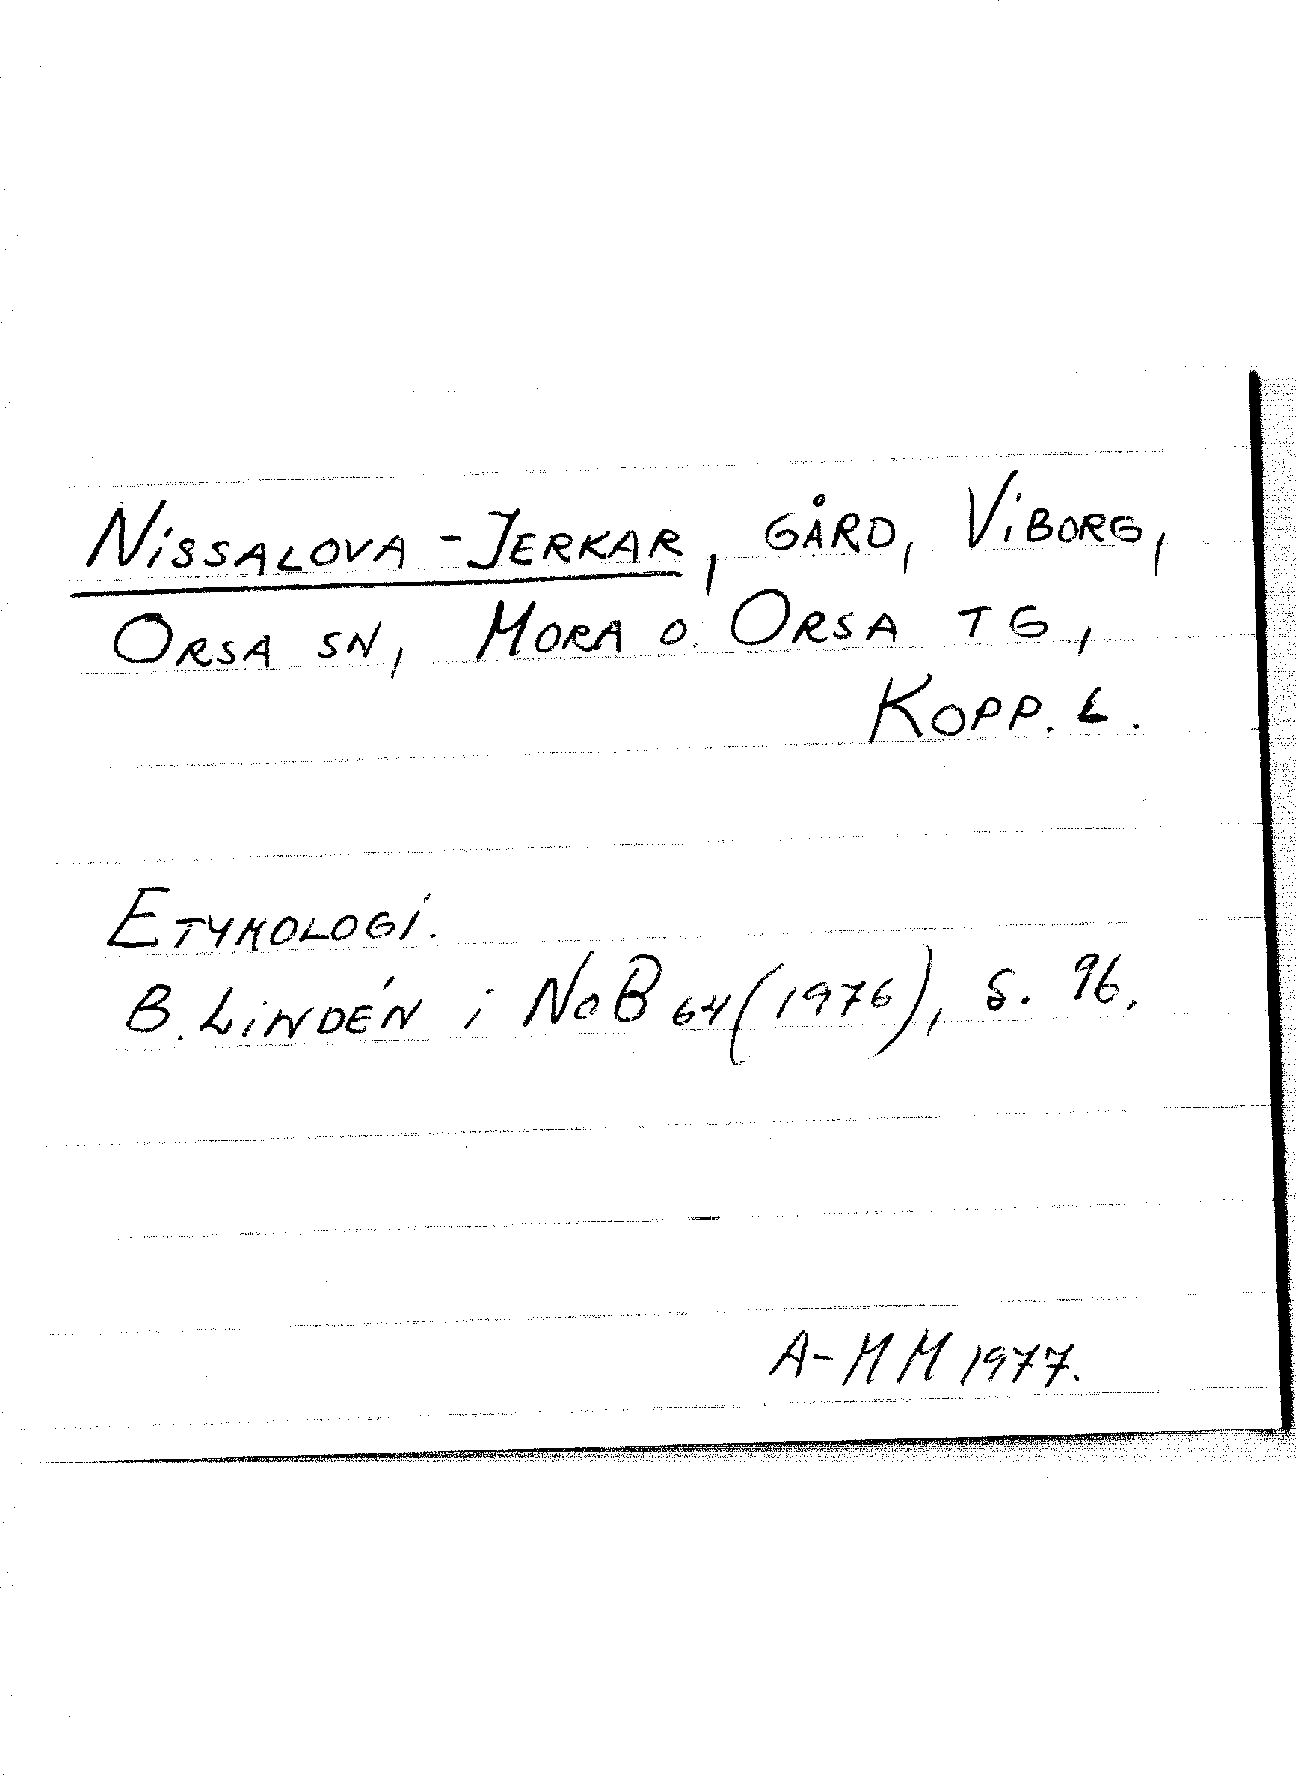 Nissalova-Jerkar, gård, Viborg,
Orsa sn, Mora o. Orsa tg,
Kopp. L.
Etymologi.
B. Lindén i NoB 64 (1976), s. 96.
A-MM 1977.